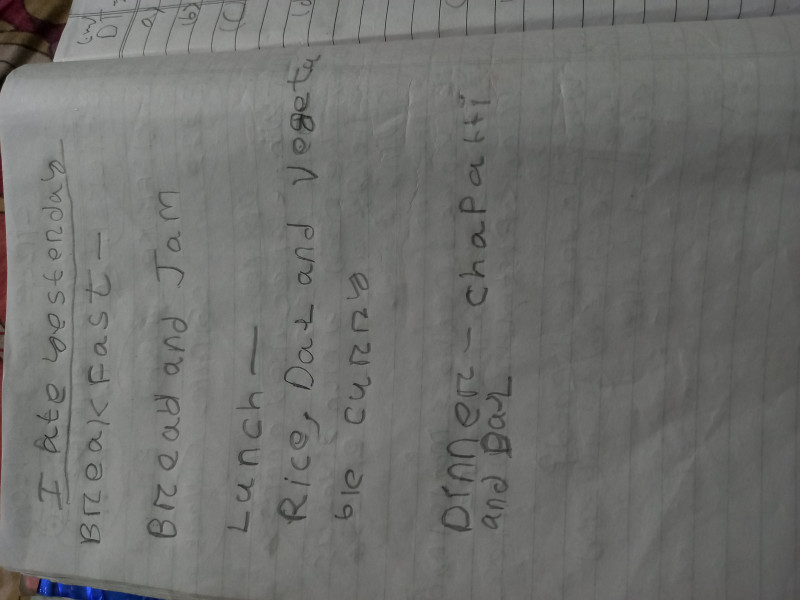 I Ate yesterday
Breakfast —
Bread and Jam
Lunch —
Rice, Dal and Vegeta
ble curry
Dinner - chapatti
and Dal
(b)
(c)